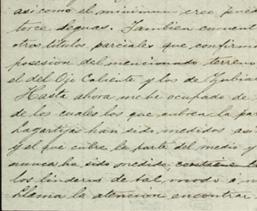 asi como el minimum cree pued
torce leguas. Tambien
otros titulos parciales que confirma
posesion del mencionado terreno
el del Ojo Caliente y los de Julian
Hasta ahora me he ocupado de
de los cuales los que cubren la par
lagartijas han sido medidos asi
y el que cubre la parte del medio y
nunca ha sido medido, contiene
los linderos de tal modo
llama la atencion encontrar